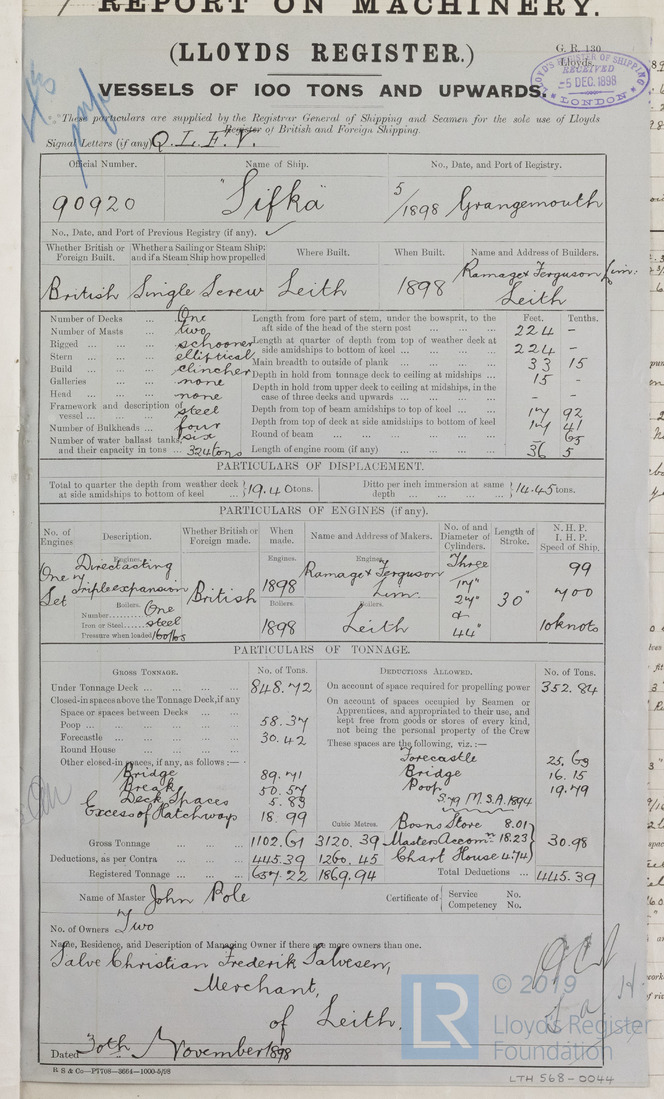 REPORT ON MACHINERY.
(LLOYDS REGISTER.)
G. R. 130
Lloyds.
LLOYD'S REGISTER OF SHIPPING
RECEIVED
-5 DEC. 1898
LONDON
VESSELS OF 100 TONS AND UPWARDS.
These particulars are supplied by the Registrar General of Shipping and Seamen for the sole use of Lloyds
Register of British and Foreign Shipping.
Signal Letters (if any) Q. L. F. V.
Official Number. Name of Ship. No., Date, and Port of Registry.
90920 "Sifka" 5/1898 Grangemouth
No., Date, and Port of Previous Registry (if any).
Whether British or Foreign Built. Whether a Sailing or Steam Ship; and if a Steam Ship how propelled Where Built. When Built. Name and Address of Builders.
British Single Screw Leith 1898 Ramage & Ferguson Lim. Leith
Number of Decks ... One
Number of Masts ... two
Rigged ... schooner
Stern ... elliptical
Build ... clincher
Galleries ... none
Head ... none
Framework and description of vessel ... steel
Number of Bulkheads ... four
Number of water ballast tanks, and their capacity in tons ... six 324 tons
Feet. Tenths.
Length from fore part of stem, under the bowsprit, to the aft side of the head of the stern post ... 224 -
Length at quarter of depth from top of weather deck at side amidships to bottom of keel ... 224 -
Main breadth to outside of plank ... 33 15
Depth in hold from tonnage deck to ceiling at midships ... 15 -
Depth in hold from upper deck to ceiling at midships, in the case of three decks and upwards ... - -
Depth from top of beam amidships to top of keel ... 17 92
Depth from top of deck at side amidships to bottom of keel 17 41
Round of beam ... - 65
Length of engine room (if any) ... 36 5
PARTICULARS OF DISPLACEMENT.
Total to quarter the depth from weather deck at side amidships to bottom of keel ... 1940 tons. Ditto per inch immersion at same depth ... 14.45 tons.
PARTICULARS OF ENGINES (if any).
No. of Engines. Description. Whether British or Foreign made. When made. Name and Address of Makers. No. of and Diameter of Cylinders. Length of Stroke. N. H. P. I. H. P. Speed of Ship.
Engines. Engines. Engines.
One Set Direct acting Triple expansion British 1898 Ramage & Ferguson Lim. Three 17" 27" & 44" 30" 99 700
Boilers. Boilers. Boilers.
Number ... One
Iron or Steel ... steel
Pressure when loaded 160 lbs
1898 Leith 10 knots
PARTICULARS OF TONNAGE.
GROSS TONNAGE. No. of Tons.
Under Tonnage Deck ... 848.72
Closed-in spaces above the Tonnage Deck, if any
Space or spaces between Decks ...
Poop ... 58.37
Forecastle ... 30.42
Round House ...
Other closed-in spaces, if any, as follows:—
Bridge 89.71
Break 50.57
Deck Spaces 5.83
Excess of Hatchways 18.99
Cubic Metres.
Gross Tonnage ... 1102.61 3120.39
Deductions, as per Contra ... 445.39 1260.45
Registered Tonnage ... 657.22 1859.94
DEDUCTIONS ALLOWED. No. of Tons.
On account of space required for propelling power 352.84
On account of spaces occupied by Seamen or Apprentices, and appropriated to their use, and kept free from goods or stores of every kind, not being the personal property of the Crew
These spaces are the following, viz.:—
Forecastle 25.63
Bridge 16.15
Poop 19.79
S. 79 M.S.A. 1894
Bosns Store 8.01
Masters Accomn. 18.23
Chart House 4.74
30.98
Total Deductions ... 445.39
Name of Master John Pole
Certificate of Service No.
Competency No.
No. of Owners Two
Name, Residence, and Description of Managing Owner if there are more owners than one.
Salve Christian Frederik Salvesen,
Merchant,
of Leith.
Dated 30th November 1898
R S & Co—P7708—3664—1000-5/98
LR
© 2019
Lloyd's Register
Foundation
LTH 568-0044